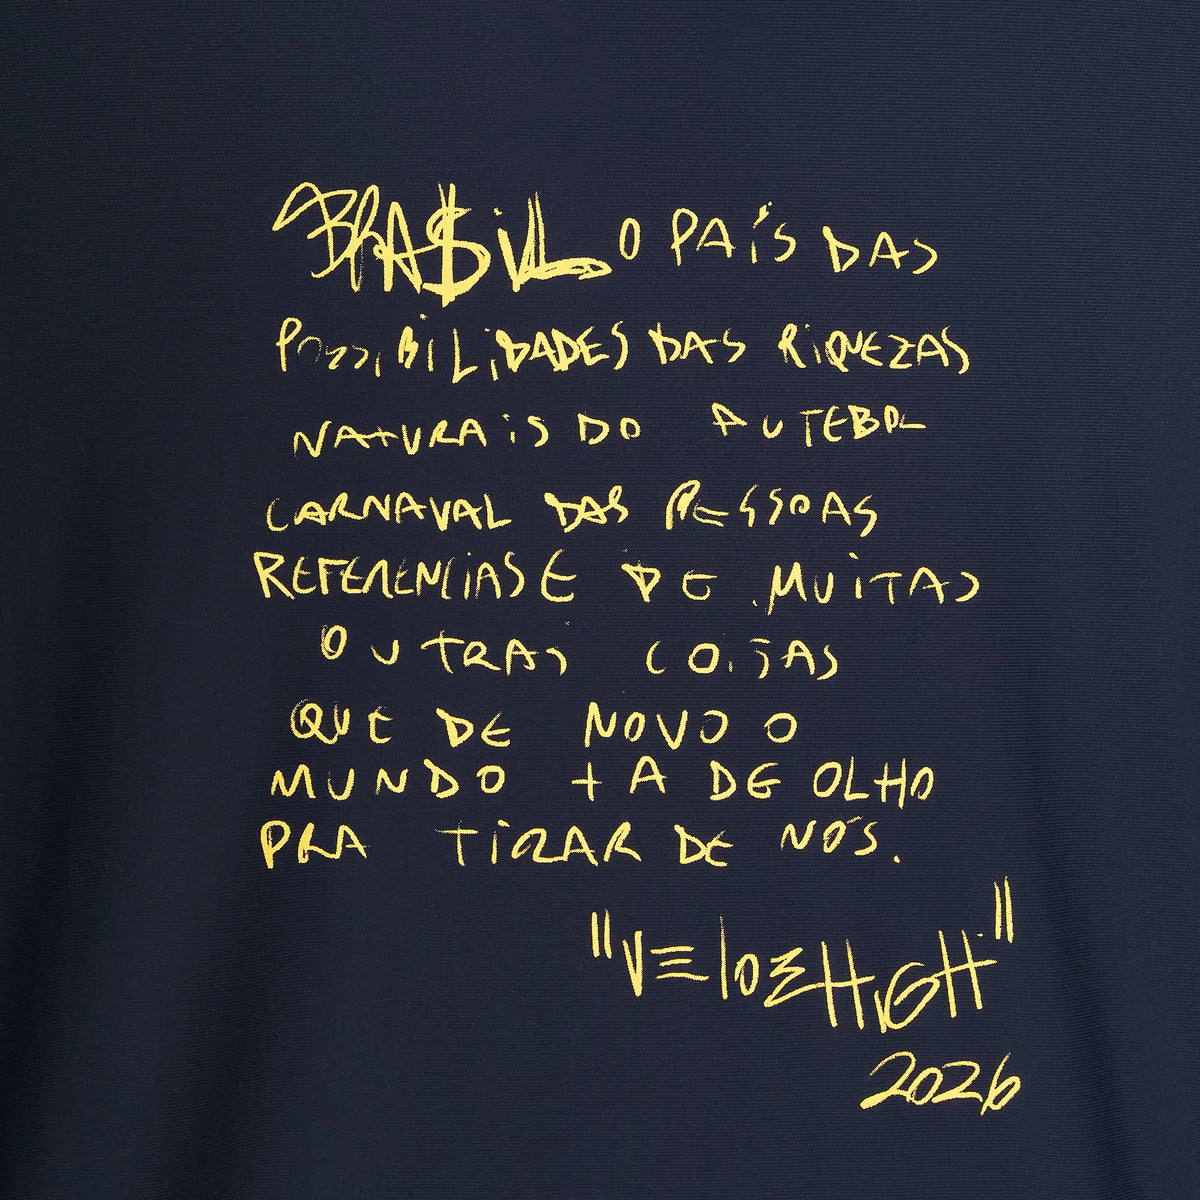 BRA$iL O PAíS DAS
POSSiBiLiDADES DAS RiQUEZAS
NATURAiS DO FUTEBOL
CARNAVAL DAS PESSOAS
REFERENCiAS E DE MUiTAS
OUTRAS COiSAS
QUE DE NOVO O
MUNDO + A DE OLHO
PRA TiRAR DE NÓS.
"VELOEHiGH"
2026